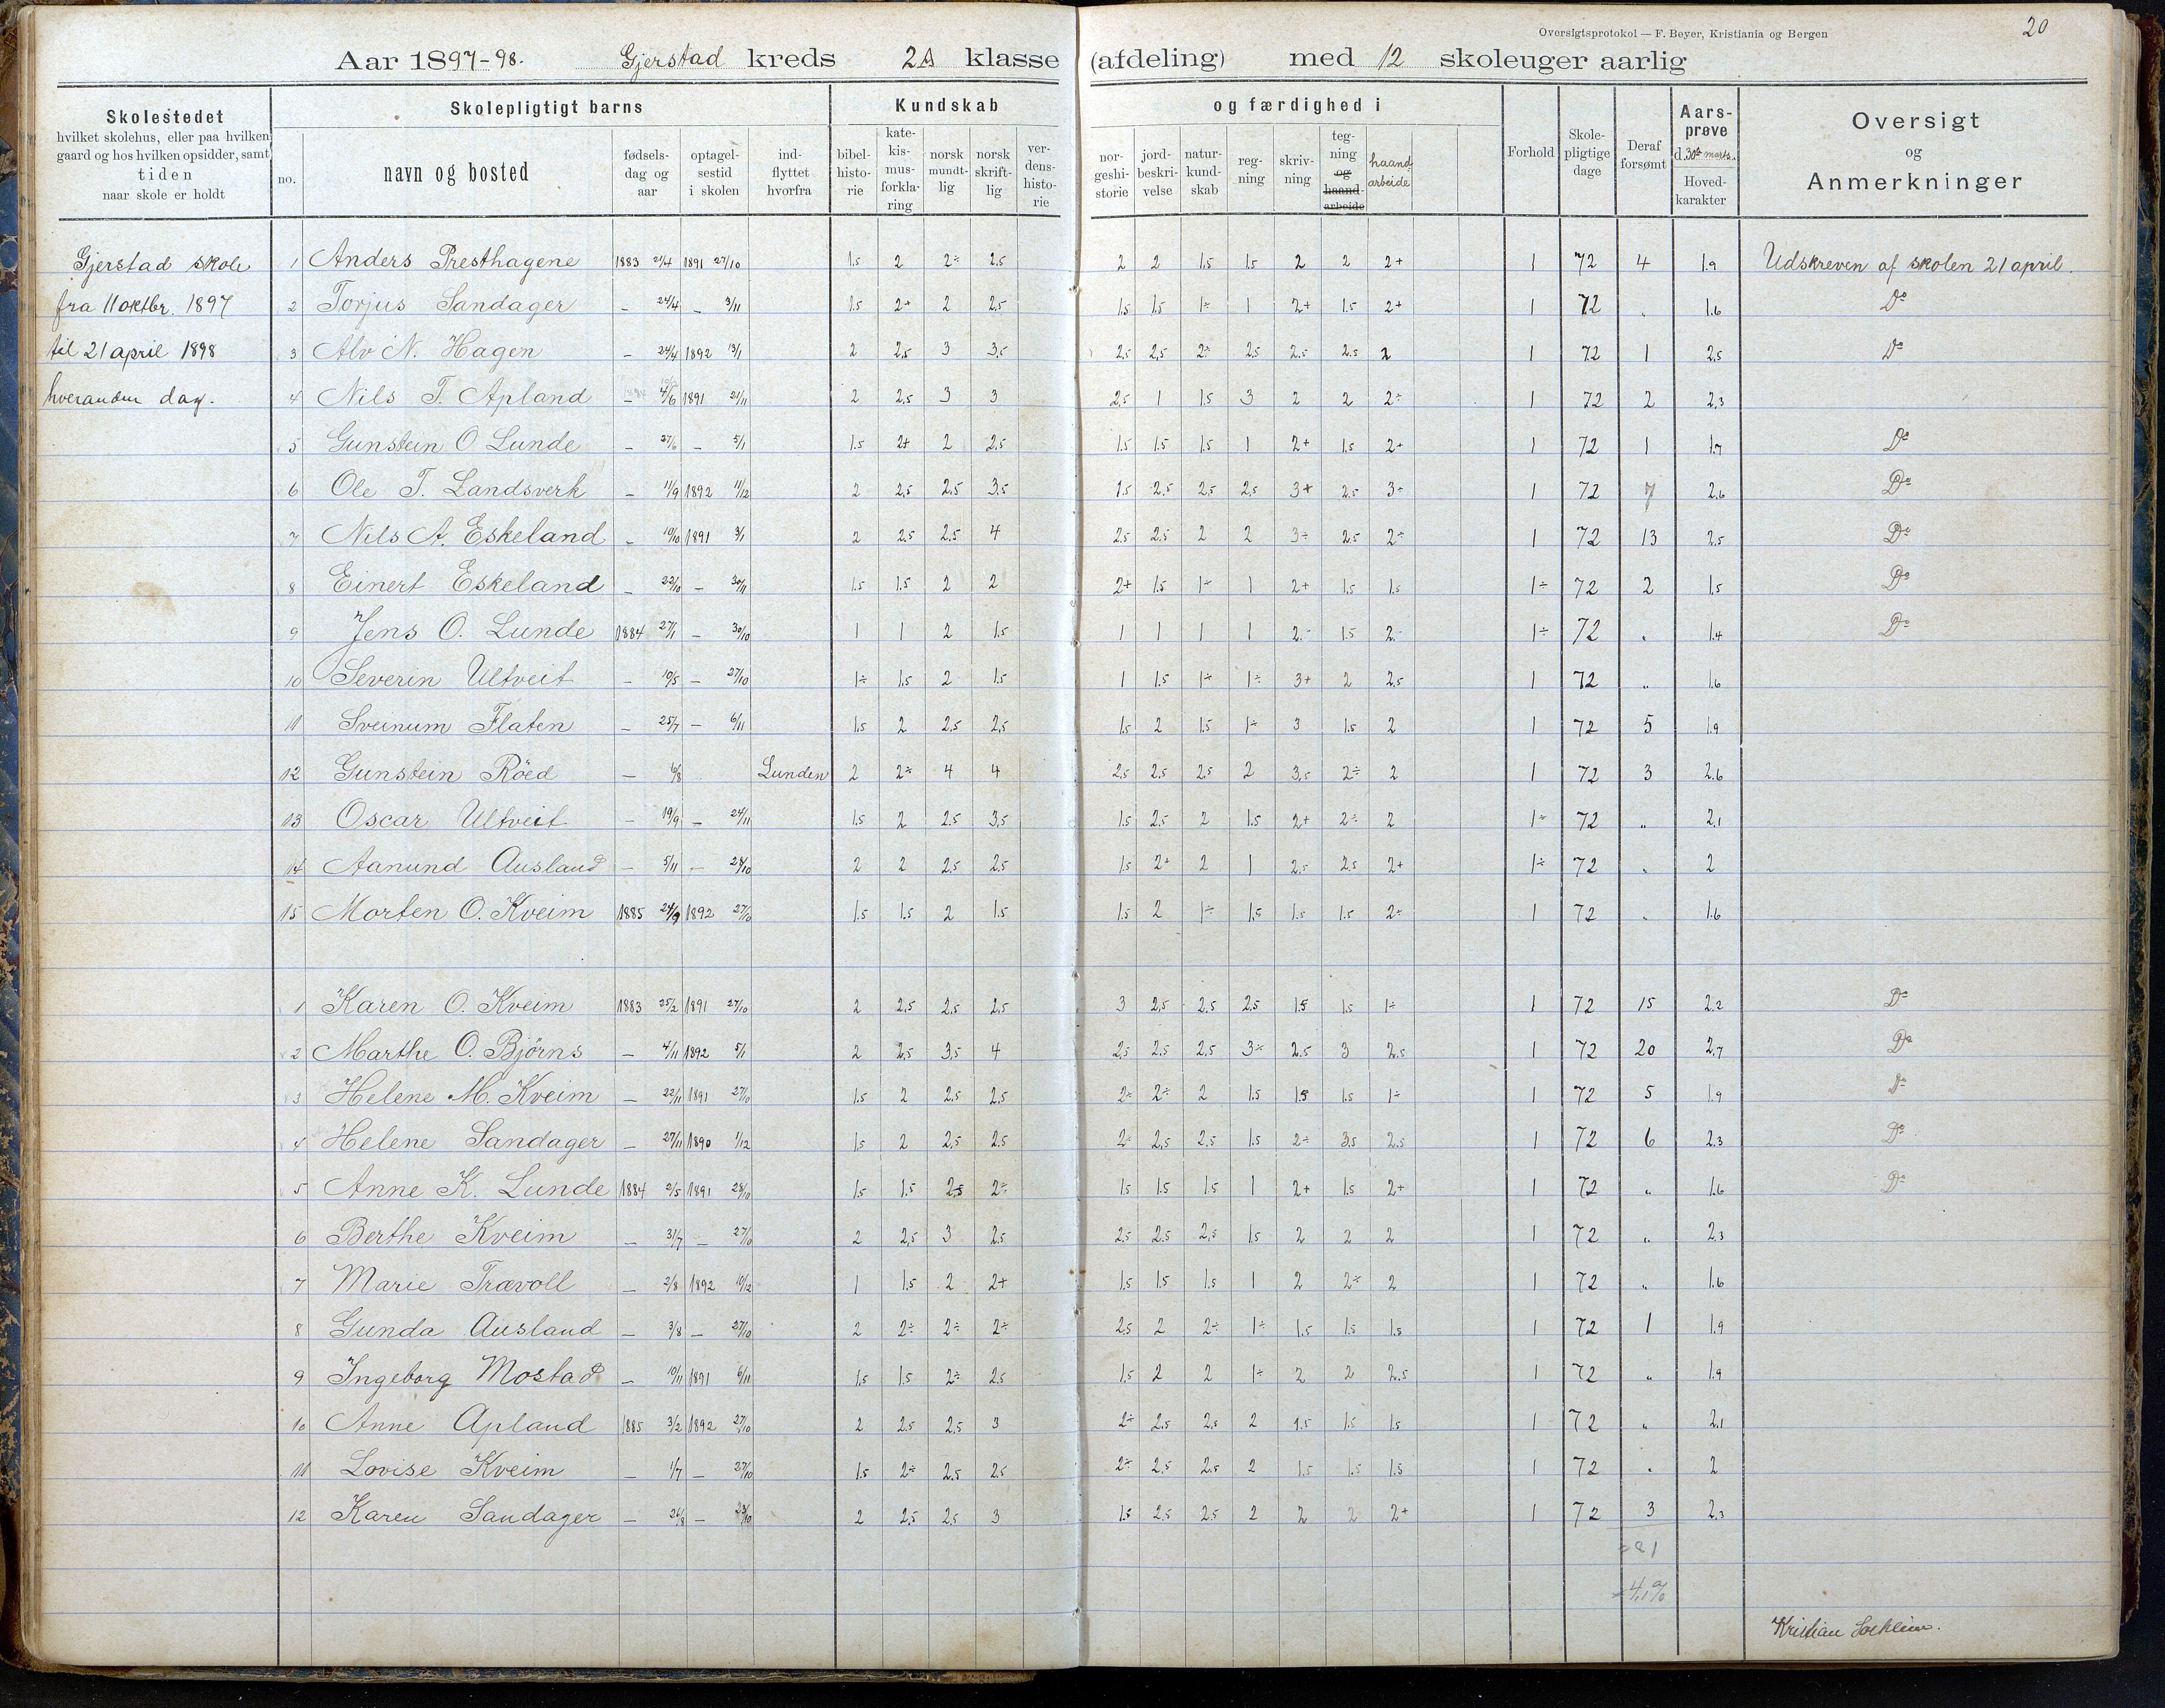 Oversigtsprotokol — F. Beyer, Kristiania og Bergen
20
Aar 1897-98. Gjerstad kreds 2A klasse (afdeling) med 12 skoleuger aarlig
Skolestedet
hvilket skolehus, eller paa hvilken
gaard og hos hvilken opsidder, samt
tiden
naar skole er holdt
Skolepligtigt barns
no.
navn og bosted
fødsels-
dag og
aar
optagel-
sestid
i skolen
ind-
flyttet
hvorfra
Kundskab
bibel-
histo-
rie
kate-
kis-
mus-
forkla-
ring
norsk
mundt-
lig
norsk
skrift-
lig
ver-
dens-
histo-
rie
og færdighed i
nor-
geshi-
storie
jord-
beskri-
velse
natur-
kund-
skab
reg-
ning
skriv-
ning
teg-
ning
og
haand-
arbeide
haand-
arbeide
Forhold
Skole-
pligtige
dage
Deraf
forsømt
Aars-
prøve
d. 30te marts.
Hoved-
karakter
Oversigt
og
Anmerkninger
Gjerstad skole
fra 11 oktbr. 1897
til 21 april 1898
hveranden dag.
1 Anders Presthagene 1883 24/4 1891 27/10 1.5 2 2÷ 2.5 2 2 1.5 1.5 2 2 2+ 1 72 4 1.9 Udskreven af skolen 21 april.
2 Torjus Sandager — 24/4 — 3/11 1.5 2+ 2 2.5 1.5 1.5 1÷ 1 2+ 1.5 2+ 1 72 „ 1.6 Do
3 Alv N. Hagen — 24/4 1892 13/1 2 2.5 3 3.5 2.5 2.5 2÷ 2.5 2.5 2.5 2 1 72 1 2.5 Do
4 Nils T. Apland — 4/6 1891 21/11 2 2.5 3 3 2.5 1 1.5 3 2 2 2÷ 1 72 2 2.3
5 Gunstein O Lunde — 27/6 — 5/1 1.5 2+ 2 2.5 1.5 1.5 1.5 1 2+ 1.5 2+ 1 72 1 1.7 Do
6 Ole T. Landsverk — 11/9 1892 11/12 2 2.5 2.5 3.5 1.5 2.5 2.5 2.5 3+ 2.5 3÷ 1 72 7 2.6 Do
7 Nils A. Eskeland — 10/10 1891 3/1 2 2.5 2.5 4 2.5 2.5 2 2 3÷ 2.5 2÷ 1 72 13 2.5 Do
8 Einert Eskeland — 22/10 — 30/11 1.5 1.5 2 2 2+ 1.5 1÷ 1 2+ 1.5 1.5 1÷ 72 2 1.5 Do
9 Jens O. Lunde 1884 27/1 — 30/10 1 1 2 1.5 1 1 1 1 2÷ 1.5 2÷ 1÷ 72 „ 1.4 Do
10 Severin Ultveit — 10/5 — 27/10 1÷ 1.5 2 1.5 1 1.5 1÷ 1÷ 3+ 2 2.5 1 72 „ 1.6
11 Sveinum Flaten — 25/7 — 6/11 1.5 2 2.5 2.5 1.5 2 1.5 1÷ 3 1.5 2 1 72 5 1.9
12 Gunstein Röed — 6/8 Lunden 2 2÷ 4 4 2.5 2.5 2.5 2 3.5 2÷ 2 1 72 3 2.6
13 Oscar Ultveit — 19/9 — 24/11 1.5 2 2.5 3.5 1.5 2.5 2 1.5 2+ 2÷ 2 1÷ 72 „ 2.1
14 Aanund Ausland — 5/11 — 28/10 2 2 2.5 2.5 1.5 2+ 2 1 2.5 2.5 2+ 1÷ 72 „ 2
15 Morten O. Kveim 1885 24/9 1892 27/10 1.5 1.5 2 1.5 1.5 2 1÷ 1.5 1.5 1.5 2÷ 1 72 „ 1.6
1 Karen O. Kveim 1883 25/2 1891 27/10 2 2.5 2.5 2.5 3 2.5 2.5 2.5 1.5 1.5 1÷ 1 72 15 2.2 Do
2 Marthe O. Bjørns — 4/11 1892 5/1 2 2.5 3.5 4 2.5 2.5 2.5 3÷ 2.5 3 2.5 1 72 20 2.7 Do
3 Helene M. Kveim — 22/11 1891 27/10 1.5 2 2.5 2.5 2÷ 2÷ 2 1.5 1.5 1.5 1÷ 1 72 5 1.9 Do
4 Helene Sandager — 27/11 1890 1/12 1.5 2 2.5 2.5 2÷ 2.5 2.5 1.5 2÷ 3.5 2.5 1 72 6 2.3 Do
5 Anne K. Lunde 1884 2/5 1891 28/10 1.5 1.5 2.5 2÷ 1.5 1.5 1.5 1 2+ 1.5 2+ 1 72 „ 1.6 Do
6 Berthe Kveim — 31/7 — 27/10 2 2.5 3 2.5 2.5 2.5 2.5 1.5 2 2 2 1 72 „ 2.3
7 Marie Trævoll — 2/8 1892 10/12 1 1.5 2 2+ 1.5 1.5 1.5 1 2 2÷ 2 1 72 „ 1.6
8 Gunda Ausland — 3/8 — 27/10 2 2÷ 2÷ 2÷ 2.5 2 2÷ 1÷ 1.5 1.5 1.5 1 72 1 1.9
9 Ingeborg Mostad — 10/11 1891 6/11 1.5 1.5 2÷ 2.5 1.5 2 2 1÷ 2 2 2.5 1 72 „ 1.9
10 Anne Apland 1885 3/2 1892 27/10 2 2.5 2.5 3 2÷ 2.5 2.5 2 1.5 1.5 1.5 1 72 „ 2.1
11 Lovise Kveim — 1/7 — 27/10 1.5 2÷ 2.5 2.5 2÷ 2.5 2.5 2 1.5 1.5 1.5 1 72 „ 2
12 Karen Sandager — 26/8 — 28/10 2 2.5 2.5 3 1.5 2.5 2.5 2 2 2 2+ 1 72 3 2.3
= 81
= 4,1%
Kristian